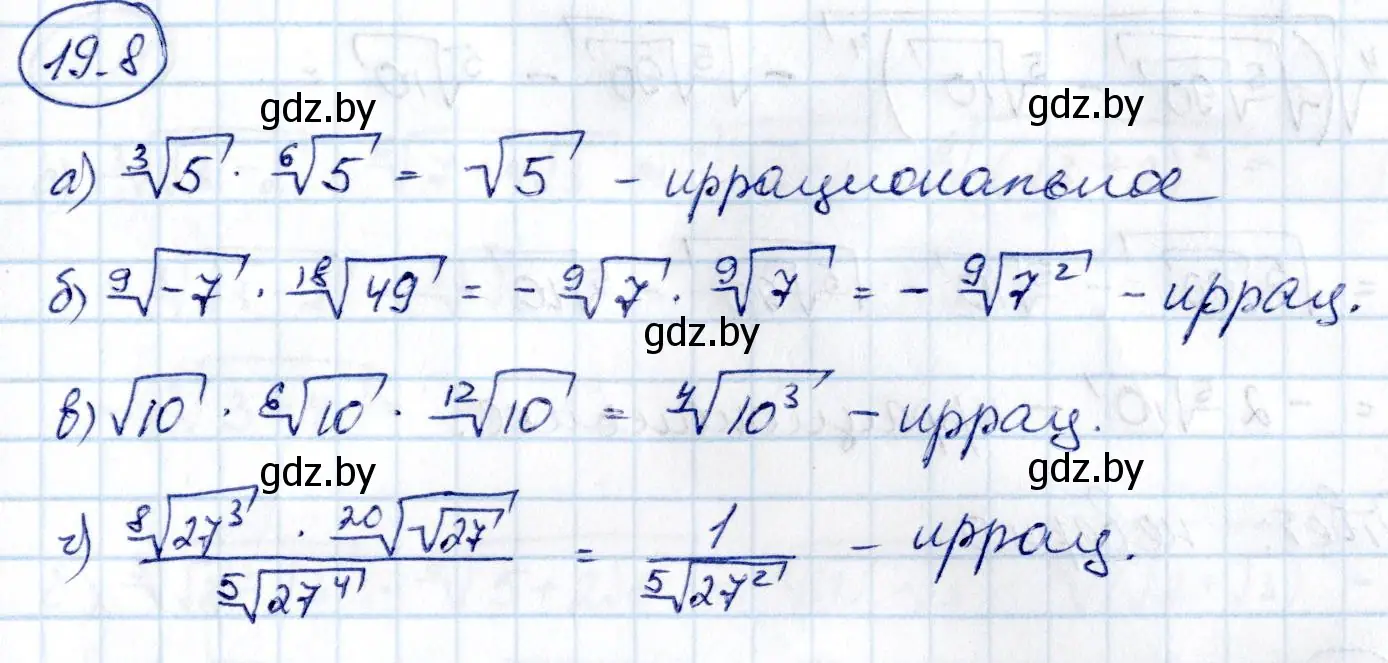 19.8
gdz.by gdz.by
а) ∛5 · ⁶√5 = √5 – иррациональное
б) ⁹√(-7) · ¹⁸√49 = - ⁹√7 · ⁹√7 = - ⁹√(7²) – иррац.
gdz.by
в) √10 · ⁶√10 · ¹²√10 = ⁴√(10³) – иррац.
gdz.by gdz.by
г) (⁸√(27³) · ²⁰√(√27)) / ⁵√(27⁴) = 1 / ⁵√(27²) – иррац.